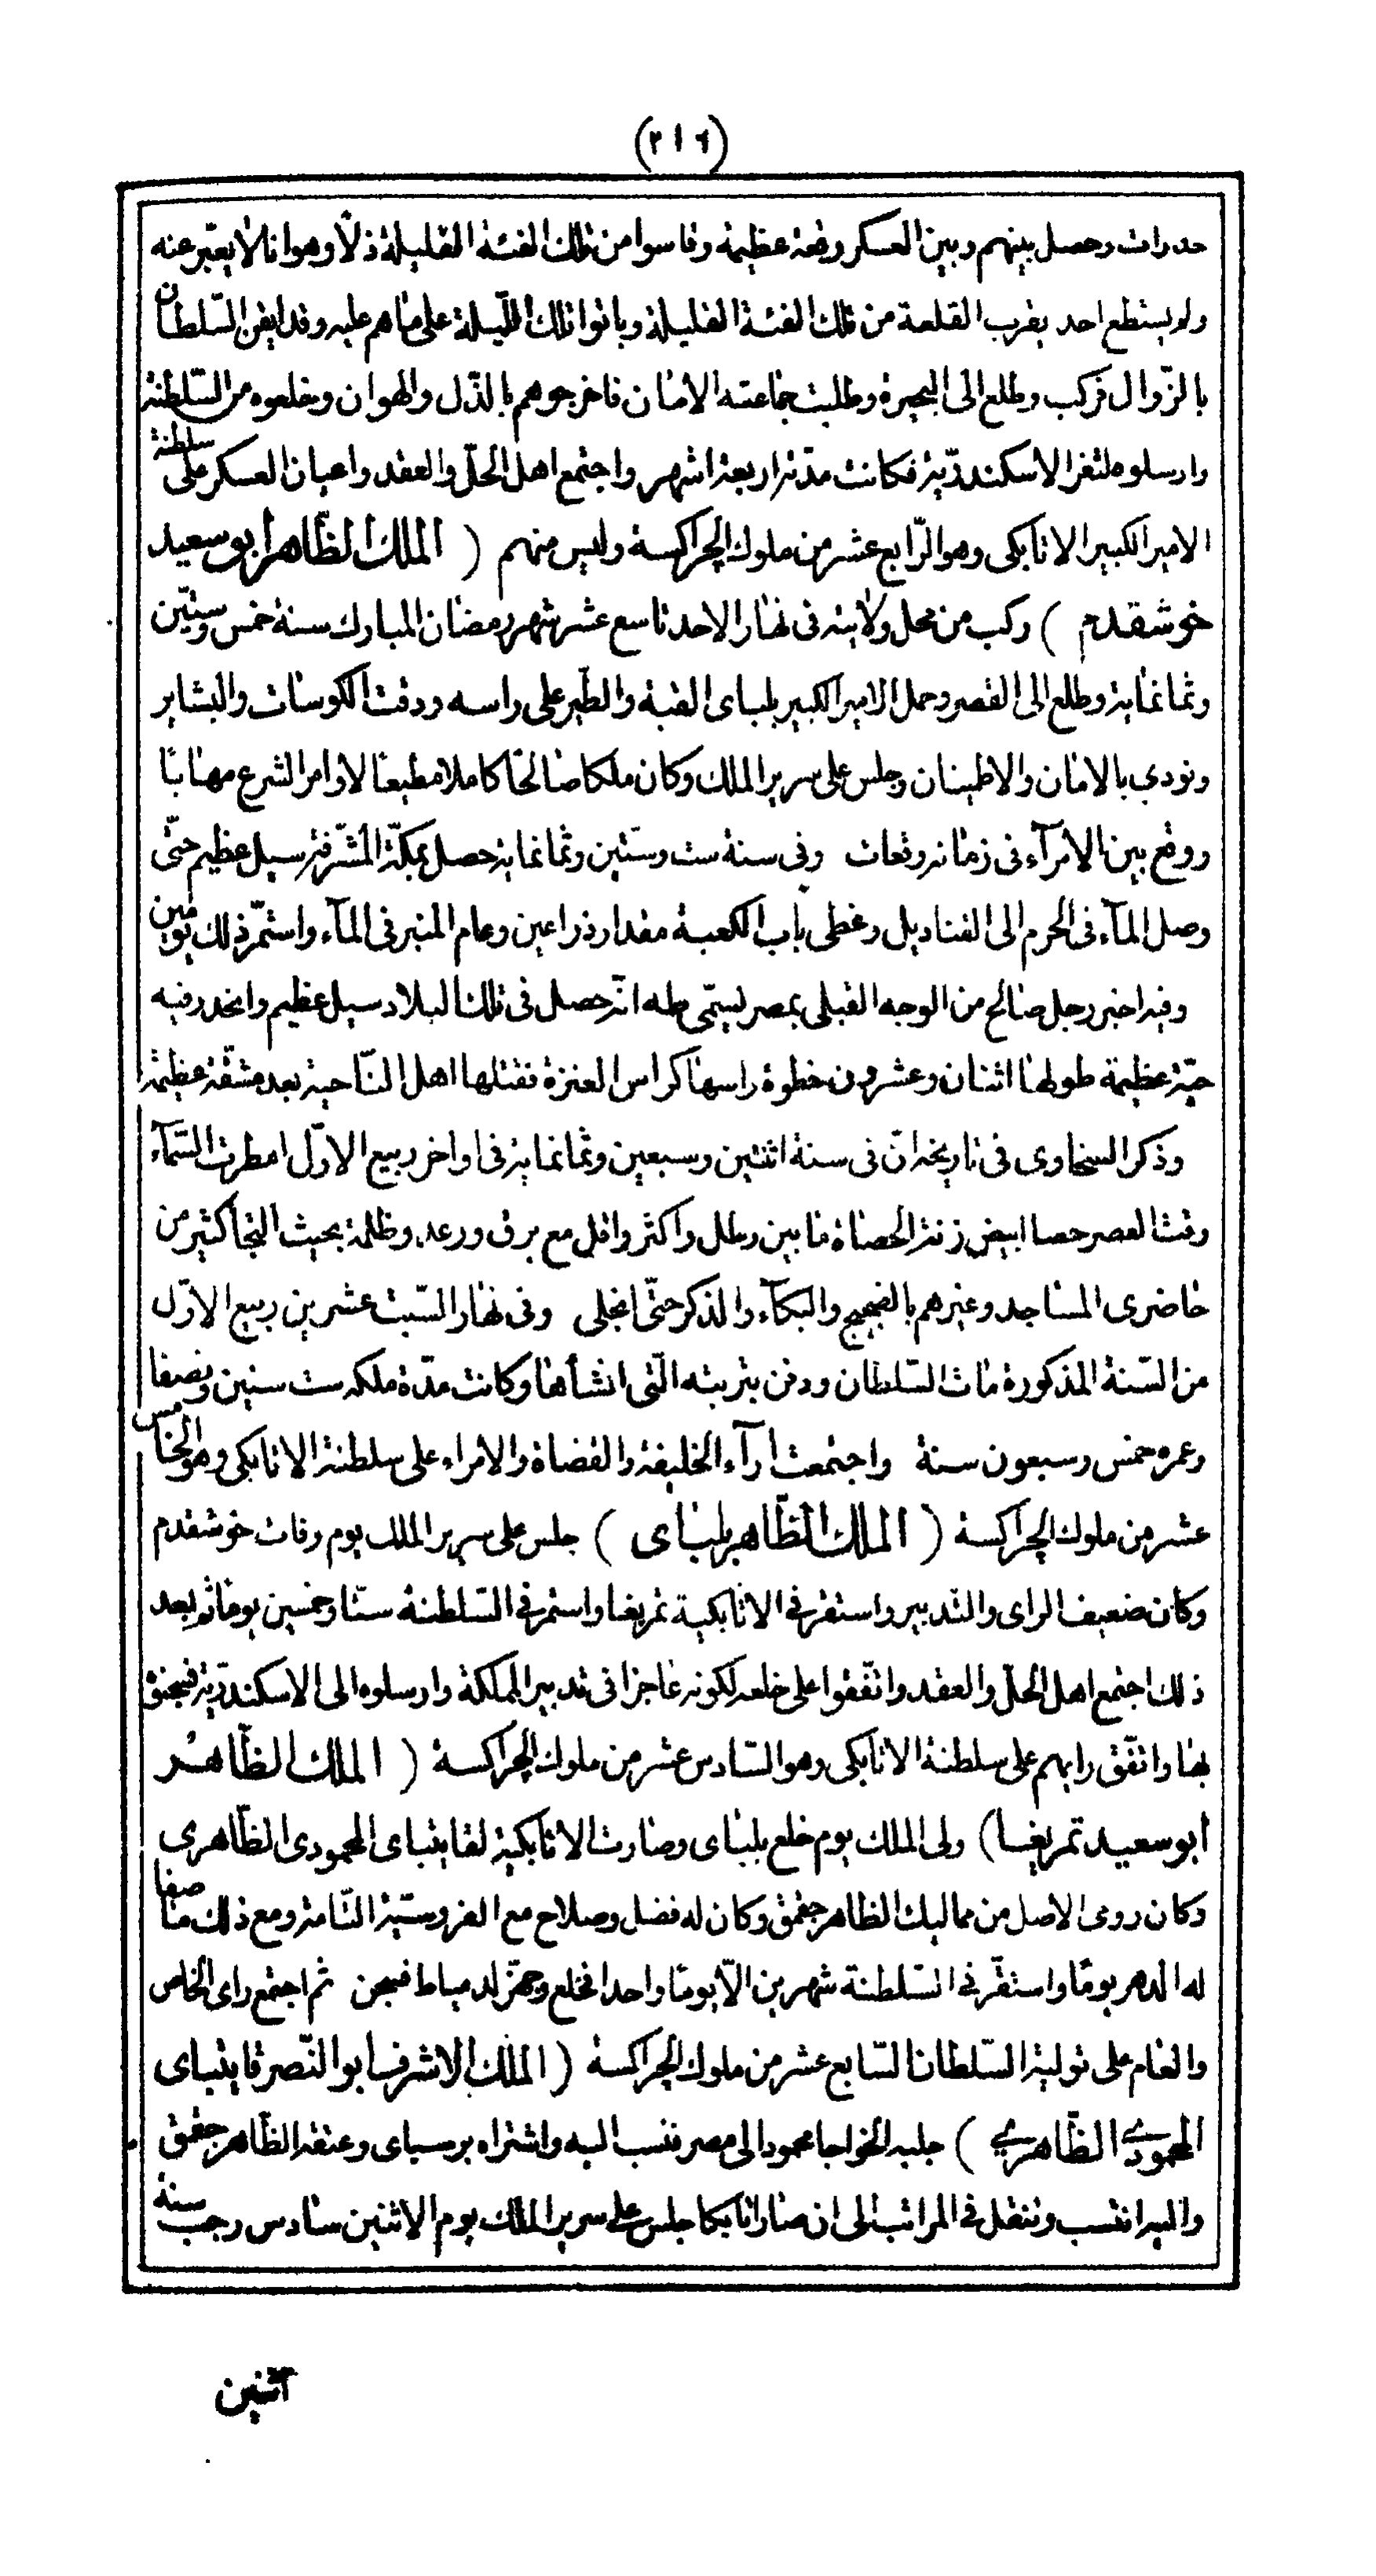 (٢١٦)
حدرات وحصل بينهم وبين العسكر وقعة عظيمة وقاسوا من تلك الفئة القليلة ذلّا وهوانا لا يعبّر عنه
ولم يستطع احد يقرب القلعة من تلك الفئة القليلة وباتوا تلك اللّيلة على ما هم عليه وقد ايقن السّلطان
بالزّوال فركب وطلع الى البحيرة وطلبت جماعته الامان فاخرجوهم بالذّل والهوان وخلعوه من السّلطنة
وارسلوه لثغر الاسكندريّة فكانت مدّته اربعة اشهر واجتمع اهل الحلّ والعقد واعيان العسكر على سلطنة
الامير الكبير الاتابكى وهو الرّابع عشر من ملوك الجراكسة وليس منهم ( الملك الظّاهر أبو سعيد
خوشقدم ) ركب من محل ولايته فى نهار الاحد تاسع عشر شهر رمضان المبارك سنة خمس وستّين
وثمانماية وطلع الى القصر وحمل الامير الكبير بلباى القبة والطّير على راسه ودقت الكوسات والبشاير
ونودي بالامان والاطمينان وجلس على سرير الملك وكان ملكا صالحا كاملا مطيعا لاوامر الشرع مهابا
ووقع بين الامرآء فى زمانه وقعات وفى سنة ست وستّين وثمانماية حصل بمكّة المشرّفة سيل عظيم حتّى
وصل المآء فى الحرم الى القناديل وغطى باب الكعبة مقدار ذراعين وعام المنبر فى المآء واستمّر ذلك يومين
وفيه اخبر رجل صالح من الوجه القبلى بمصر يسمّى طه انّه حصل فى تلك البلاد سيل عظيم وانحدر فيه
حيّة عظيمة طولها اثنان وعشرون خطوة راسها كراس العنزة فقتلها اهل النّاحية بعد مشقّة عظيمة
وذكر السخاوى فى تاريخه انّ فى سنة اثنتين وسبعين وثمانماية فى اواخر ربيع الاوّل امطرت السّمآء
وقت العصر حصا ابيض زنة الحصاة ما بين رطل واكثر واقل مع برق ورعد وظلمة بحيث التجأ كثير من
حاضرى المساجد وغيرهم بالضجيج والبكآء والذكر حتّى انجلى وفى نهار السّبت عشرين ربيع الاوّل
من السّنة المذكورة مات السّلطان ودفن بتربته الّتى انشأها وكانت مدّة ملكه ست سنين ونصفا
وعمره خمس وسبعون سنة واجتمعت ارآء الخليفة والقضاة والامراء على سلطنة الاتابكى وهو الخامس
عشر من ملوك الجراكسة ( الملك الظّاهر بلباى ) جلس على سرير الملك يوم وفات خوشقدم
وكان ضعيف الراى والتدبير واستقر فى الاتابكية تمربغا واستمر فى السّلطنة ستّا وخمسين يوما ثم بعد
ذلك اجتمع اهل الحلّ والعقد واتّفقوا على خلعه لكونه عاجزا فى تدبير المملكة وارسلوه الى الاسكندريّة فسجنوه
بها واتّفق رايهم على سلطنة الاتابكى وهو السّادس عشر من ملوك الجراكسة ( الملك الظّاهر
أبو سعيد تمربغا ) ولى الملك يوم خلع بلباى وصارت الاتابكية لقايتباى المحمودى الظّاهرى
وكان رومى الاصل من مماليك الظاهر جقمق وكان له فضل وصلاح مع الفروسيّة التّامة ومع ذلك ما صفا
له الدهر يومًا واستقّر فى السّلطنة شهرين الّا يومًا واحدا فخلع وجهّز لدمياط فسجن ثم اجتمع راى الخاص
والعام على تولية السّلطان السّابع عشر من ملوك الجراكسة ( الملك الاشرف ابو النّصر قايتباى
المحمودي الظّاهري ) جلبه الخواجا محمود الى مصر فنسب اليه واشتراه برسباى وعتقه الظّاهر جقمق
واليه انتسب وتنقل فى المراتب الى ان صار اتابكا جلس على سرير الملك يوم الاثنين سادس رجب سنة
اثنين